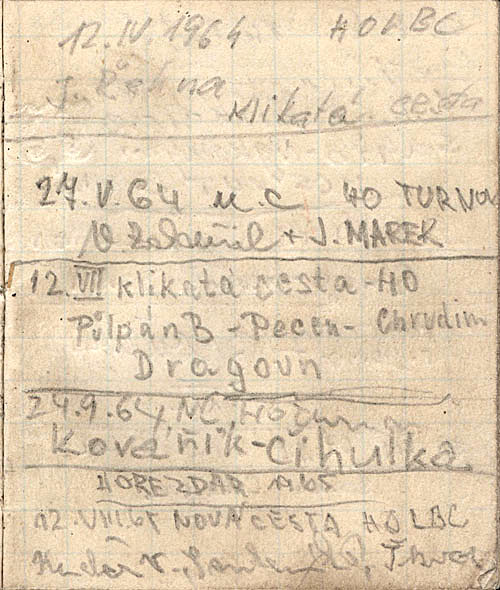 12.IV 1964 HO LBC
J. Řehna
Klikatá cesta
27.V.64 N.C HO TURNOV
V + J. MAREK
12.VII klikatá cesta - HO
Půlpán B - Pecen - Chrudim
Dragoun
24.9.64, NC,
Kovařík - Cihulka
HO BEZDĚZ 1965
12.VIII.65 NOVÁ CESTA HO LBC